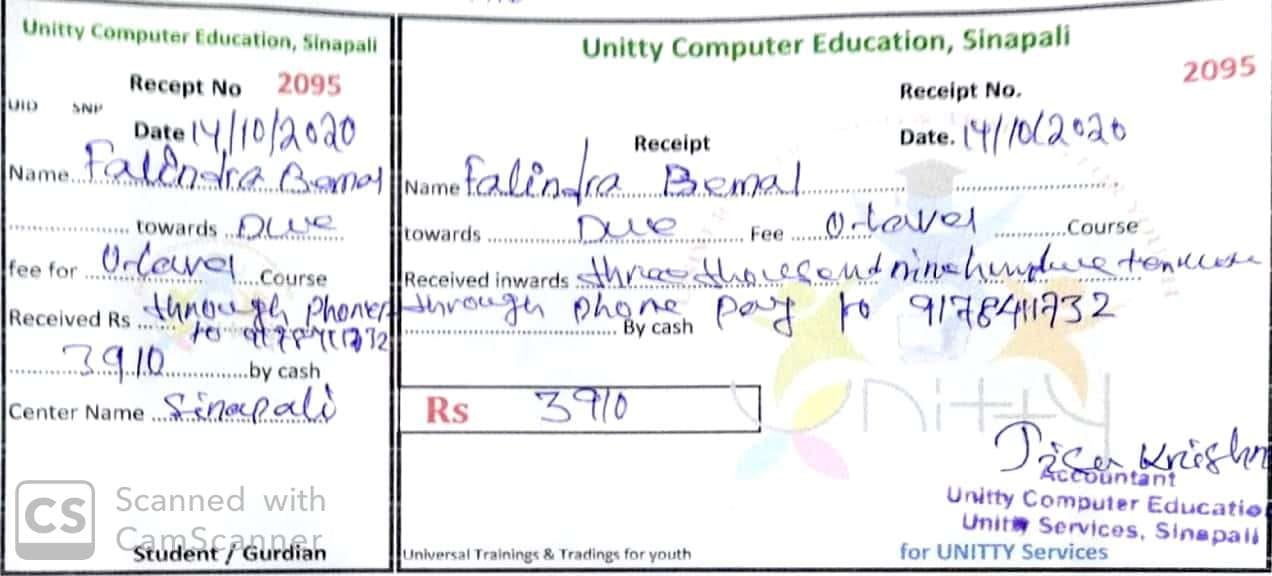 Unitty Computer Education, Sinapali
Recept No 2095
UID SNP
Date 14/10/2020
Name Falindra Bemal
towards Due
fee for O-level Course
Received Rs through Phonepay
to 9178411732
3910 by cash
Center Name Sinapali
Student / Gurdian
Scanned with
CamScanner
CS
Unitty Computer Education, Sinapali
2095
Receipt No.
Receipt
Date. 14/10/2020
Name Falindra Bemal
towards Due Fee O-level Course
Received inwards three thousand nine hundred ten
through phone pay to 9178411732
By cash
Rs 3910
Unitty
Krishn
Accountant
Unitty Computer Educatio
Unitty Services, Sinapali
Universal Trainings & Tradings for youth
for UNITTY Services